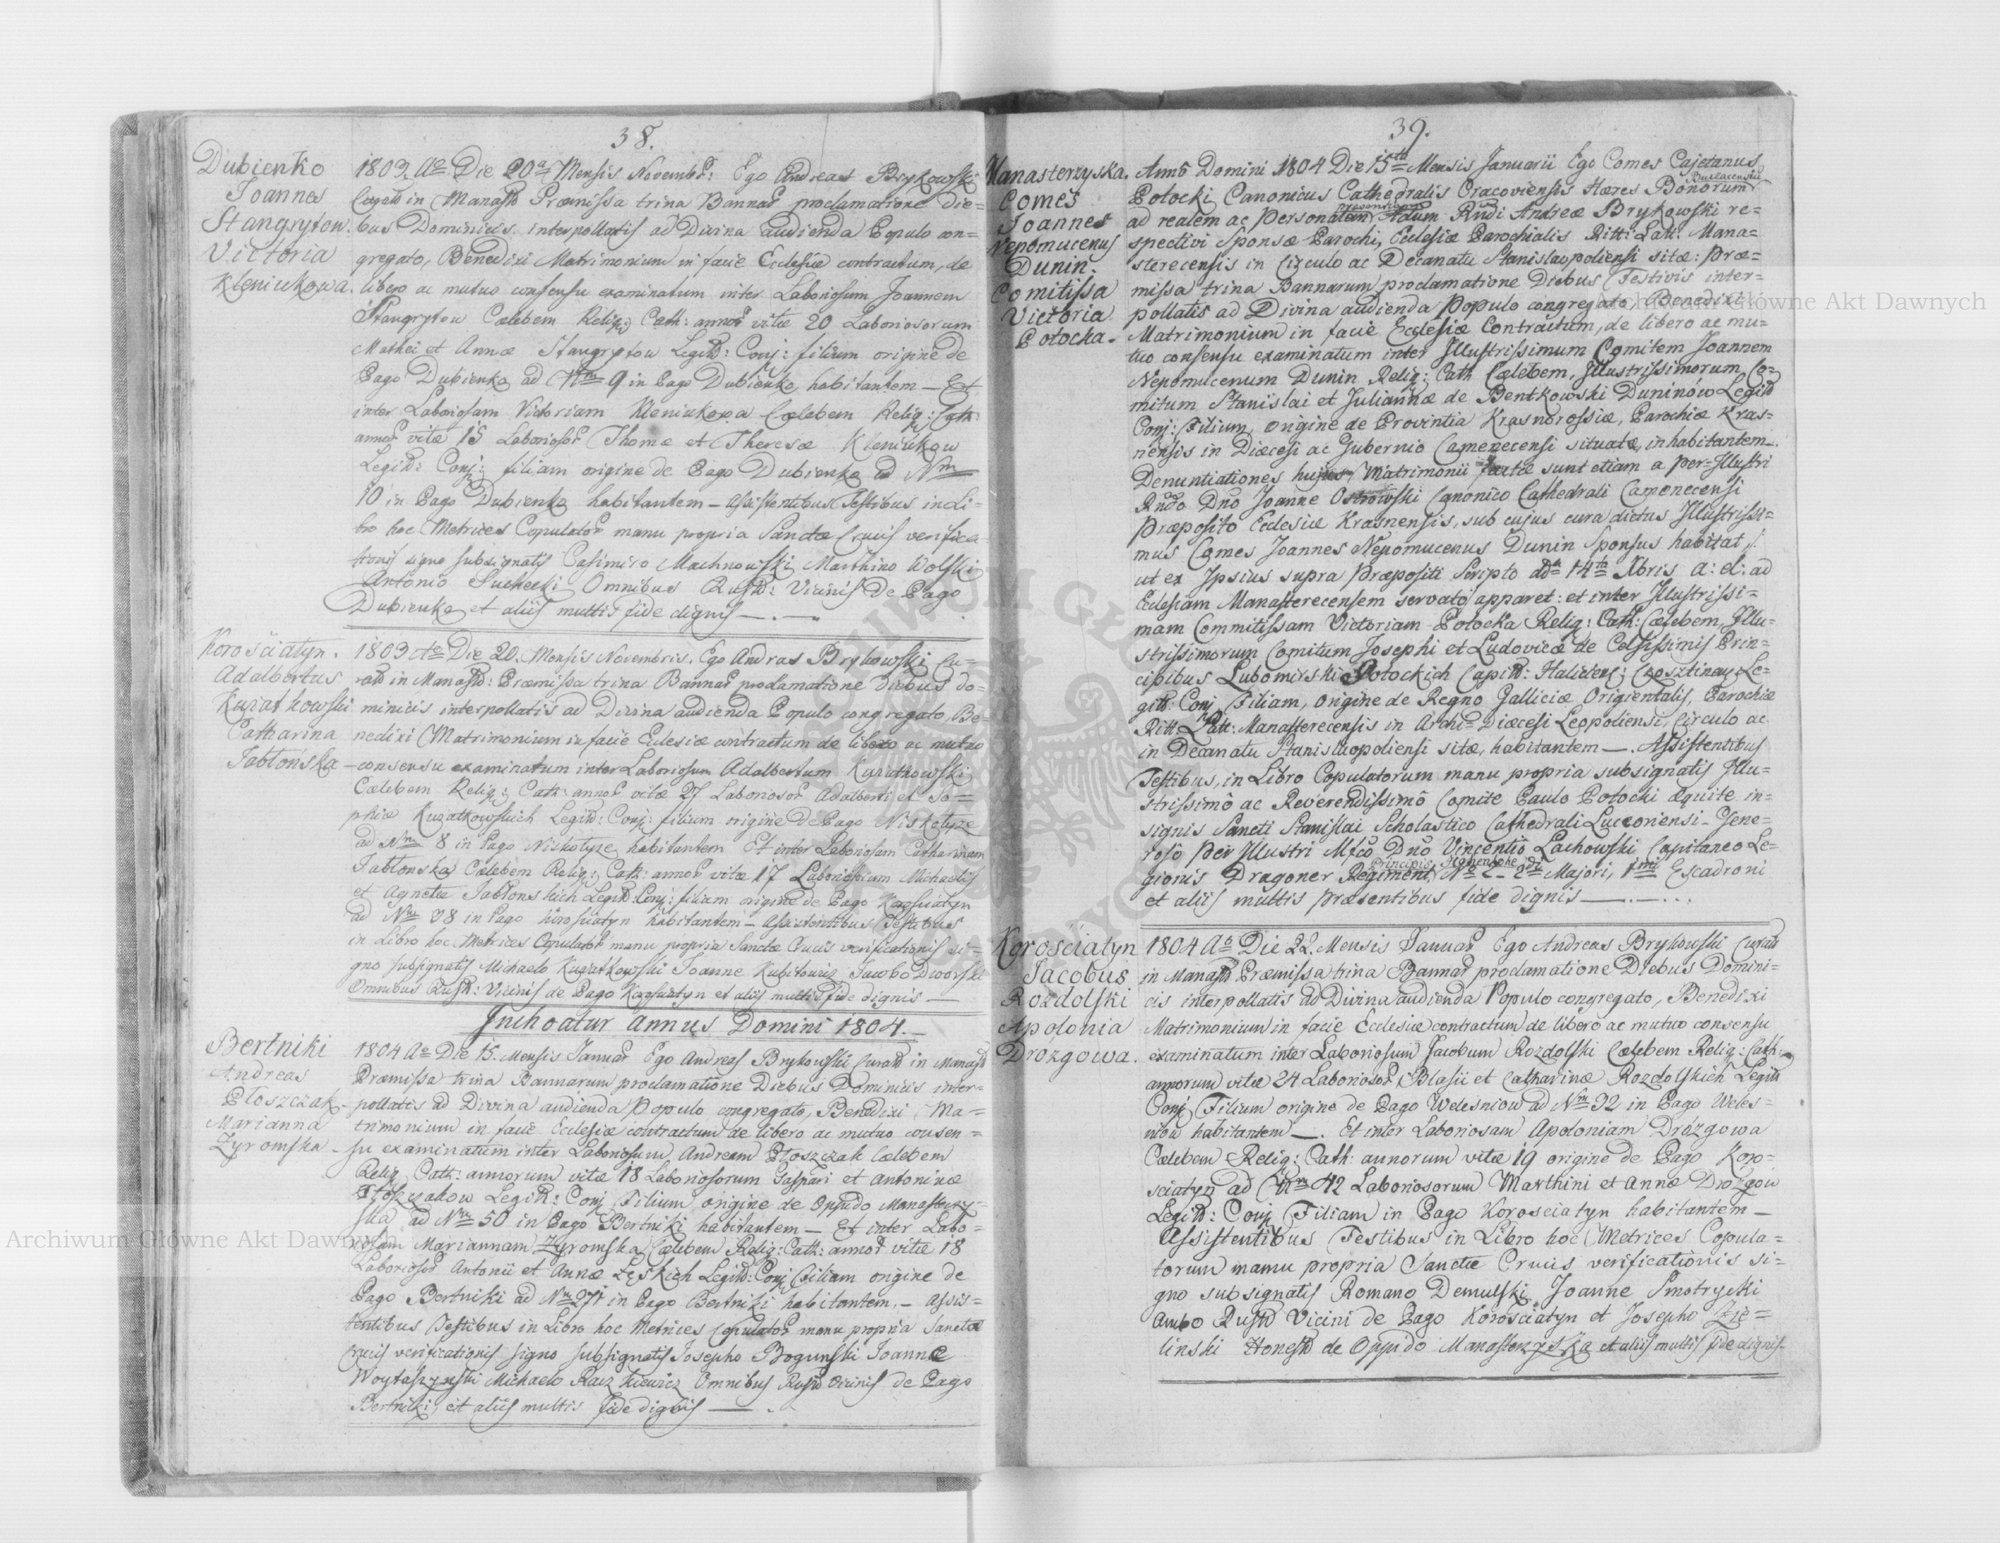 38.
Dubienko
Joannes
Stangrytow
Victoria
Kleniukowa.
1803 Ao Die 20a Mensis Novembr: Ego Andreas Brykowski
in Manast: Præmissa trina Bannar proclamatione die=
bus Dominicis interpollatis ad Divina audienda Populo con=
gregato, Benedixi Matrimonium in facie Ecclesiæ contractum, de
libero ac mutuo consensu examinatum inter Laboriosum Joannem
Stangrytow Cælebem Relig: Cath: annor vitæ 20 Laboriosorum
Mathei et Annæ Stangrytow Legitt: Conj: filium origine de
Pago Dubienko ad Nrm 9 in Pago Dubienko habitantem — Et
inter Laboriosam Victoriam Kleniukowa Cælebem Relig: Cath:
annor vitæ 15 Laboriosor Thomæ et Theresæ Kleniukow
Legitt: Conj: filiam origine de Pago Dubienko ad Nrm
10 in Pago Dubienko habitantem — Assistentibus Testibus in Li=
bro hoc Metrices Copulator manu propria Sanctæ Crucis verifica
tionis signo subsignatis Casimiro Machnowski Marthino Wolski
Antonio Suchecki Omnibus Rust: Vicinis de Pago
Dubienko et aliis multis fide dignis —.—
Korosciatyn.
Adalbertus
Kuzatkowski
Catharina
Jabłońska
1803 Ao Die 20. Mensis Novembris. Ego Andras Brykowski Cu=
rat in Manast: Præmissa trina Bannar proclamatione diebus do=
minicis interpollatis ad Divina audienda Populo congregato, Be=
nedixi Matrimonium in facie Ecclesiæ contractum de libero ac mutuo
consensu examinatum inter Laboriosum Adalbertum Kuzatkowski
Cælebem Relig: Cath: annor vitæ 27 Laboriosor Adalberti et So=
phiæ Kuzatkowskich Legitt: Conj: filium origine de Pago Niskołyze
ad Nrm 8 in Pago Niskołyze habitantem Et inter Laboriosam Catharinam
Jabłonska Cælebem Relig: Cath: annor vitæ 17 Laboriosum Michaelis
et Agnetis Jabłonskich Legitt: Conj: filiam origine de Pago Korosciatyn
ad Nrm 38 in Pago Korosciatyn habitantem — Assistentibus Testibus
in Libro hoc Metrices Copulator manu propria Sanctæ Crucis verificationis si=
gno subsignatis Michaele Kuzatkowski Joanne Kubitowicz Jacobo Dworski
Omnibus Rust: Vicinis de Pago Korosciatyn et aliis multis fide dignis —
Inchoatur Annus Domini 1804. —
Bertniki
Andreas
Płoszczak
Marianna
Zyromska
1804 Ao Die 15. Mensis Januar Ego Andreas Brykowski Curat in Manast
Præmissa trina Bannarum proclamatione Diebus Dominicis inter=
pollatis ad Divina audienda Populo congregato, Benedixi Ma=
trimonium in facie Ecclesiæ contractum de libero ac mutuo consen=
su examinatum inter Laboriosum Andream Płoszczak Cælebem
Relig: Cath: annorum vitæ 18 Laboriosorum Gaspari et Antoninæ
Płoszczakow Legitt: Conj Filium origine de Oppido Manasterzy=
ska ad Nrm 50 in Pago Bertniki habitantem — Et inter Labo=
riosam Mariannam Zyromska Cælebem Relig: Cath: annor vitæ 18
Laboriosor Antonii et Annæ Łęskich Legitt: Conj filiam origine de
Pago Bertniki ad Nrm 271 in Pago Bertniki habitantem. — Assis=
tentibus Testibus in Libro hoc Metrices Copulator manu propria Sanctæ
Crucis verificationis signo subsignatis Josepho Bogunski Joanne
Woytaszynski Michaele Raczkiewicz Omnibus Rust Vicinis de Pago
Bertniki et aliis multis fide dignis —.
39.
Manasterzyska.
Comes
Joannes
Nepomucenus
Dunin.
Comitissa
Victoria
Potocka.
Anno Domini 1804 Die 15ta Mensis Januarii Ego Comes Cajetanus
Potocki Canonicus Cathedralis Cracoviensis Hæres Bonorum
ad realem ac personalem Adum Rndi Andreæ Brykowski re=
spectivi Sponsæ Parochi, Ecclesiæ Parochialis Ritt: Latt: Mana=
sterecensis in Circulo ac Decanatu Stanislaopoliensi sitæ: præ=
missa trina Bannarum proclamatione Diebus Festivis inter=
pollatis ad Divina audienda Populo congregato, Benedixi
Matrimonium in facie Ecclesiæ Contractum, de libero ac mu=
tuo consensu examinatum inter Illustrissimum Comitem Joannem
Nepomucenum Dunin Relig: Cath Cælebem, Illustrissimorum Co=
mitum Stanislai et Juliannæ de Bentkowski Duninów Legitt
Conj: Filium, origine de Provintia Krasnorossiæ, Parochiæ Kras=
nensis in Diæcesi ac Gubernio Camenecensi situatæ, inhabitantem —.
Denuntiationes hujus Matrimonii factæ sunt etiam a per=Illustri
Rndo Dno Joanne Ostrowski Canonico Cathedrali Camenecensi
Præposito Ecclesiæ Krasnensis, sub cujus cura dictus Illustrissi=
mus Comes Joannes Nepomucenus Dunin Sponsus habitat
ut ex Ipsius supra Præpositi Scripto ddt 14th Xbris a: el: ad
Ecclesiam Manasterecensem servato apparet: et inter Illustrissi=
mam Commitissam Victoriam Potocka Relig: Cath: Cælebem, Illu=
strissimorum Comitum Josephi et Ludovicæ de Celsissimis Prin=
cipibus Lubomirski Potockich Capitt: Haliciens: Crosztinau Le=
gitt: Conj Filiam, origine de Regno Galliciæ Orientalis, Parochiæ
Ritt Latt: Manasterecensis in Archi=Diæcesi Leopoliensi, Circulo ac
in Decanatu Stanislaopoliensi sitæ, habitantem —. Assistentibus
Testibus, in Libro Copulatorum manu propria subsignatis Illu=
strissimo ac Reverendissimo Comite Paulo Potocki æquite in=
signis Sancti Stanislai Scholastico Cathedrali Luceoriensi — Gene=
roso per Illustri Mfco Dno Vincentio Lachowski Capitaneo Le=
gionis Dragoner Regiment Principis Hohenlohe No 2 — 2di Majori, 1mi Escadroni
et aliis multis præsentibus fide dignis —.—...
Korosciatyn
Jacobus
Rozdolski
Apolonia
Drozgowa.
1804 Ao Die 22. Mensis Januar Ego Andreas Brykowski Curat
in Manast Præmissa trina Bannar proclamatione Diebus Domini=
cis interpollatis ad Divina audienda Populo congregato, Benedixi
Matrimonium in facie Ecclesiæ contractum de libero ac mutuo consensu
examinatum inter Laboriosum Jacobum Rozdolski Cælebem Relig: Cath:
annorum vitæ 24 Laboriosor Blasii et Catharinæ Rozdolskich Legitt
Conj Filium origine de Pago Welesniow ad Nrm 92 in Pago Weles=
niow habitantem —. Et inter Laboriosam Apoloniam Drozgowa
Cælebem Relig: Cath: annorum vitæ 19 origine de Pago Koro=
sciatyn ad Nrm 42 Laboriosorum Marthini et Annæ Drozgow
Legitt: Conj Filiam in Pago Korosciatyn habitantem —
Assistentibus Testibus in Libro hoc Metrices Copula=
torum manu propria Sanctæ Crucis verificationis si=
gno subsignatis Romano Demulski Joanne Smotrycki
Ambo Rust Vicini de Pago Korosciatyn et Josepho Zie=
linski Honest de Oppido Manasterzyska et aliis multis fide dignis
Archiwum Główne Akt Dawnych
Archiwum Główne Akt Dawnych